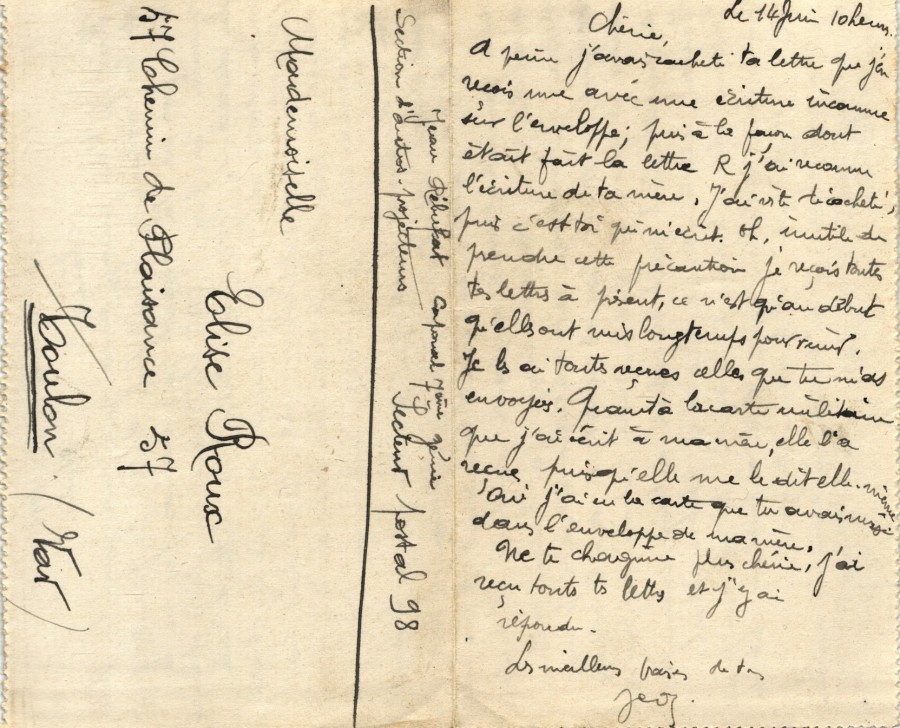 Le 14 Juin 10 heures.
Chérie,
A peine j'avais cacheté ta lettre que j'en
reçois une avec une écriture inconnue
sur l'enveloppe; puis à la façon dont
était fait la lettre R j'ai reconnu
l'écriture de ta mère. J'ai vite décacheté,
puis c'est toi qui m'écrit. Oh, inutile de
prendre cette précaution je reçois toutes
tes lettres à présent, ce n'est qu'au début
qu'elles ont mis longtemps pour venir.
Je les ai toutes reçues celles que tu m'as
envoyées. Quant à la carte militaire
que j'ai écrit à ma mère, elle l'a
reçue puisqu'elle me le dit elle-même
Oui j'ai eu la carte que tu avais mise
dans l'enveloppe de ma mère.
Ne te chagrine plus chérie, j'ai
reçu touts ts letts et j'y ai
répondu.
Les meilleurs baisers de ton
Jean
Jean caporal 7ème génie
Section d'autos-projecteurs Secteur postal 98
Mademoiselle
Elise Roux
57 Chemin de Plaisance 57
Toulon
(Var)